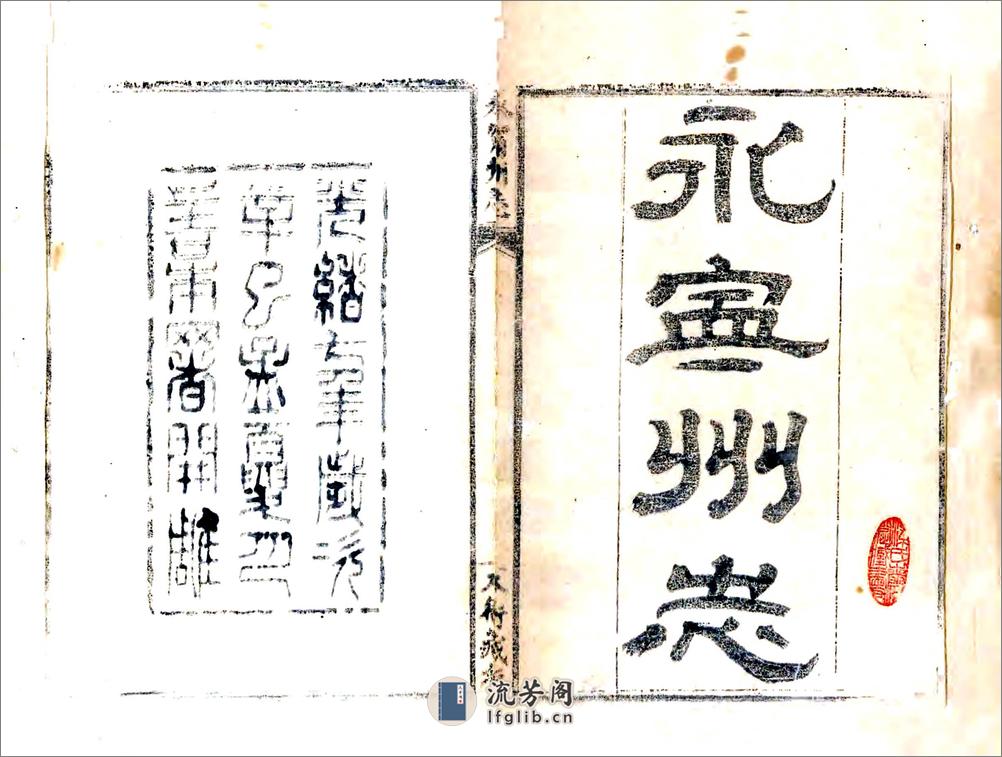 永寧州志
永寧州志
本衙藏
光緒七年歲次
辛巳孟夏
本署開雕
流芳阁
lfglib.cn